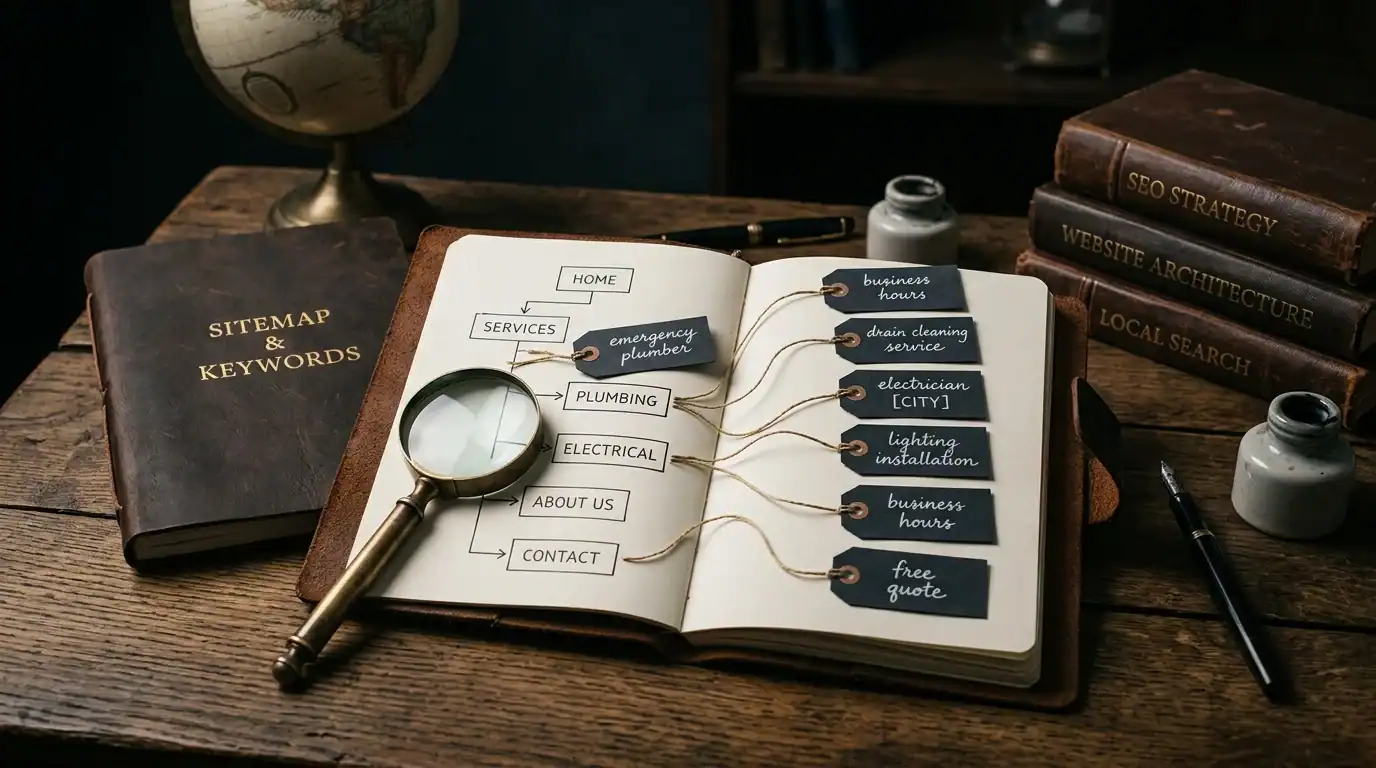 SITEMAP
&
KEYWORDS
HOME
SERVICES
emergency
plumber
PLUMBING
ELECTRICAL
ABOUT US
CONTACT
business
hours
drain cleaning
service
electrician
[CITY]
lighting
installation
business
hours
free
quote
SEO STRATEGY
WEBSITE ARCHITECTURE
LOCAL SEARCH